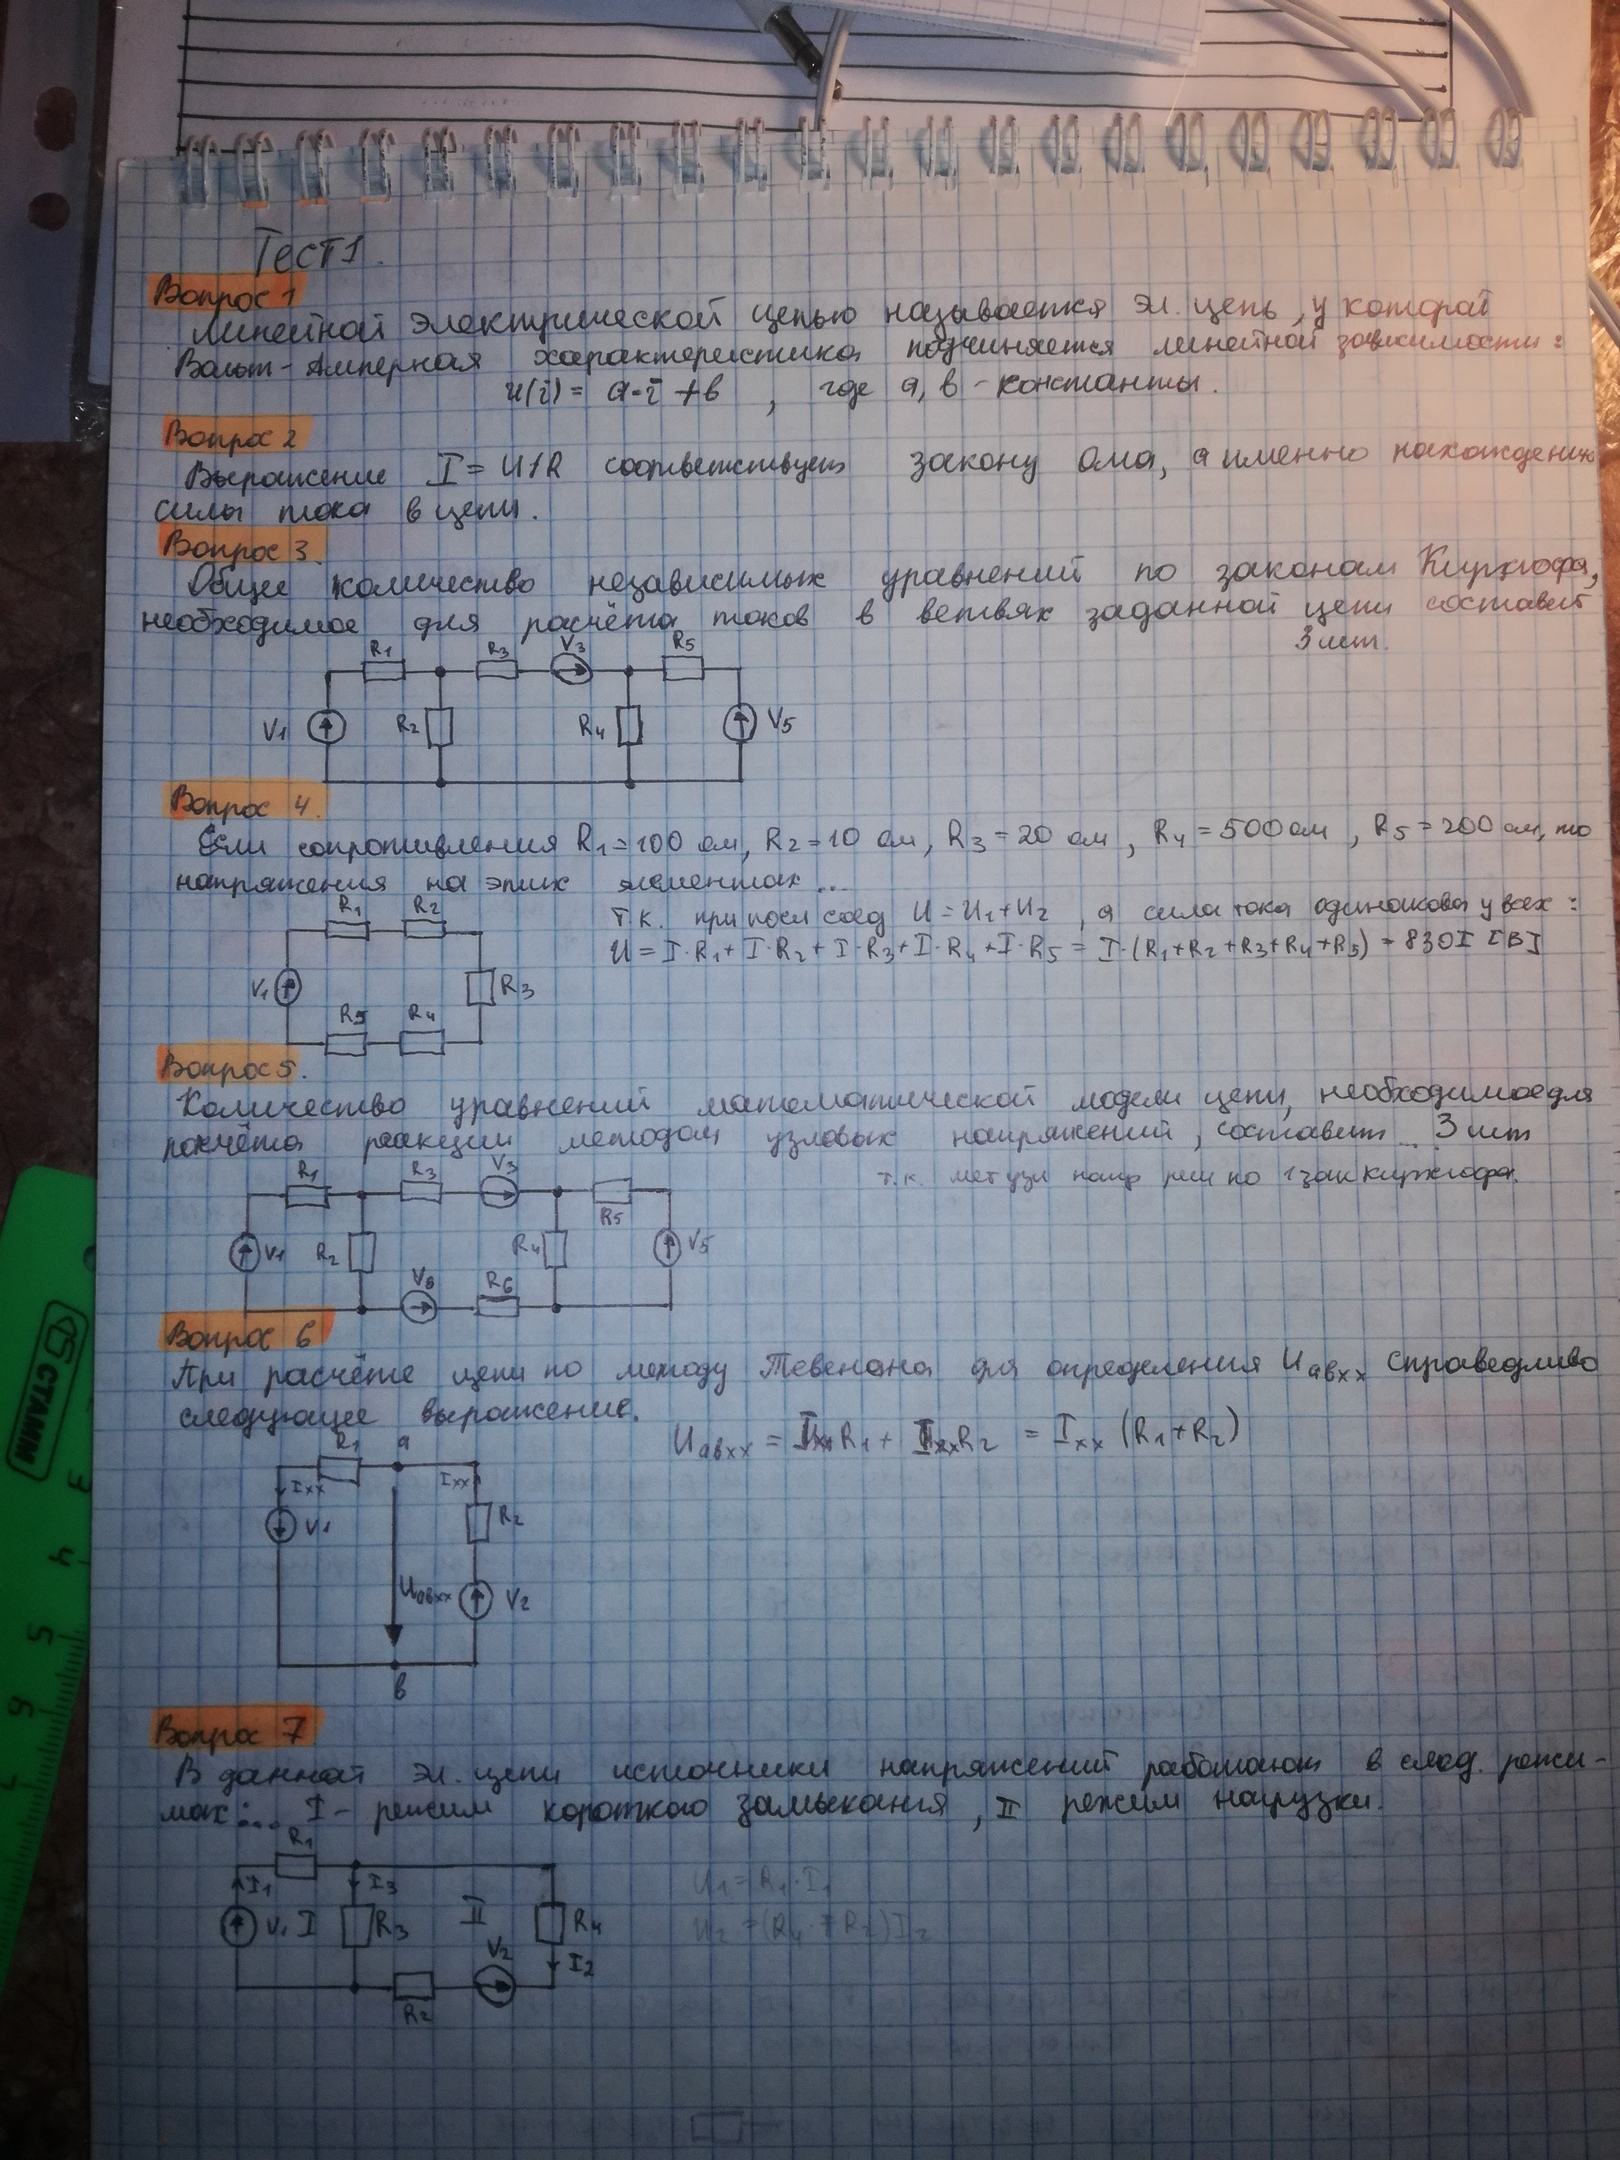 Тест 1.
Вопрос 1
Линейной электрической цепью называется эл. цепь, у которой
Вольт-Амперная характеристика подчиняется линейной зависимости:
u(i) = a·i + b , где a, b - константы.
Вопрос 2
Выражение I = U/R соответствует закону ома, а именно нахождению
силы тока в цепи.
Вопрос 3.
Общее количество независимых уравнений по законам Кирхгофа,
необходимое для расчёта токов в ветвях заданной цепи составит
3 шт.
R1 R3 V3 R5
V1 R2 R4 V5
Вопрос 4.
Если сопротивления R1=100 ом, R2=10 ом, R3=20 ом, R4=500 ом, R5=200 ом, то
напряжения на этих элементах...
т.к. при посл соед U=U1+U2 , а сила тока одинакова у всех:
U=I·R1+I·R2+I·R3+I·R4+I·R5 = I·(R1+R2+R3+R4+R5) = 830I [В]
R1 R2
V1 R3
R5 R4
Вопрос 5.
Количество уравнений математической модели цепи, необходимое для
расчёта реакции методом узловых напряжений, составит... 3 шт
т.к. мет узл напр реш по 1 зак кирхгофа.
R1 R3 V3 R5
V1 R2 R4 V5
V6 R6
Вопрос 6
При расчёте цепи по методу Тевенана для определения Uabxx справедливо
следующее выражение.
Uabxx = IxxR1 + IxxR2 = Ixx (R1+R2)
R1 a
Ixx Ixx
V1 R2
Uabxx V2
b
Вопрос 7
В данной эл. цепи источники напряжений работают в след. режи-
мах:... I - режим короткого замыкания, II режим нагрузки.
R1
I1 I3
V1 I R3 II R4
V2 I2
R2
U1=R1·I1
U2=(R4+R2)I2
СТАММ
3 4 5 6 7